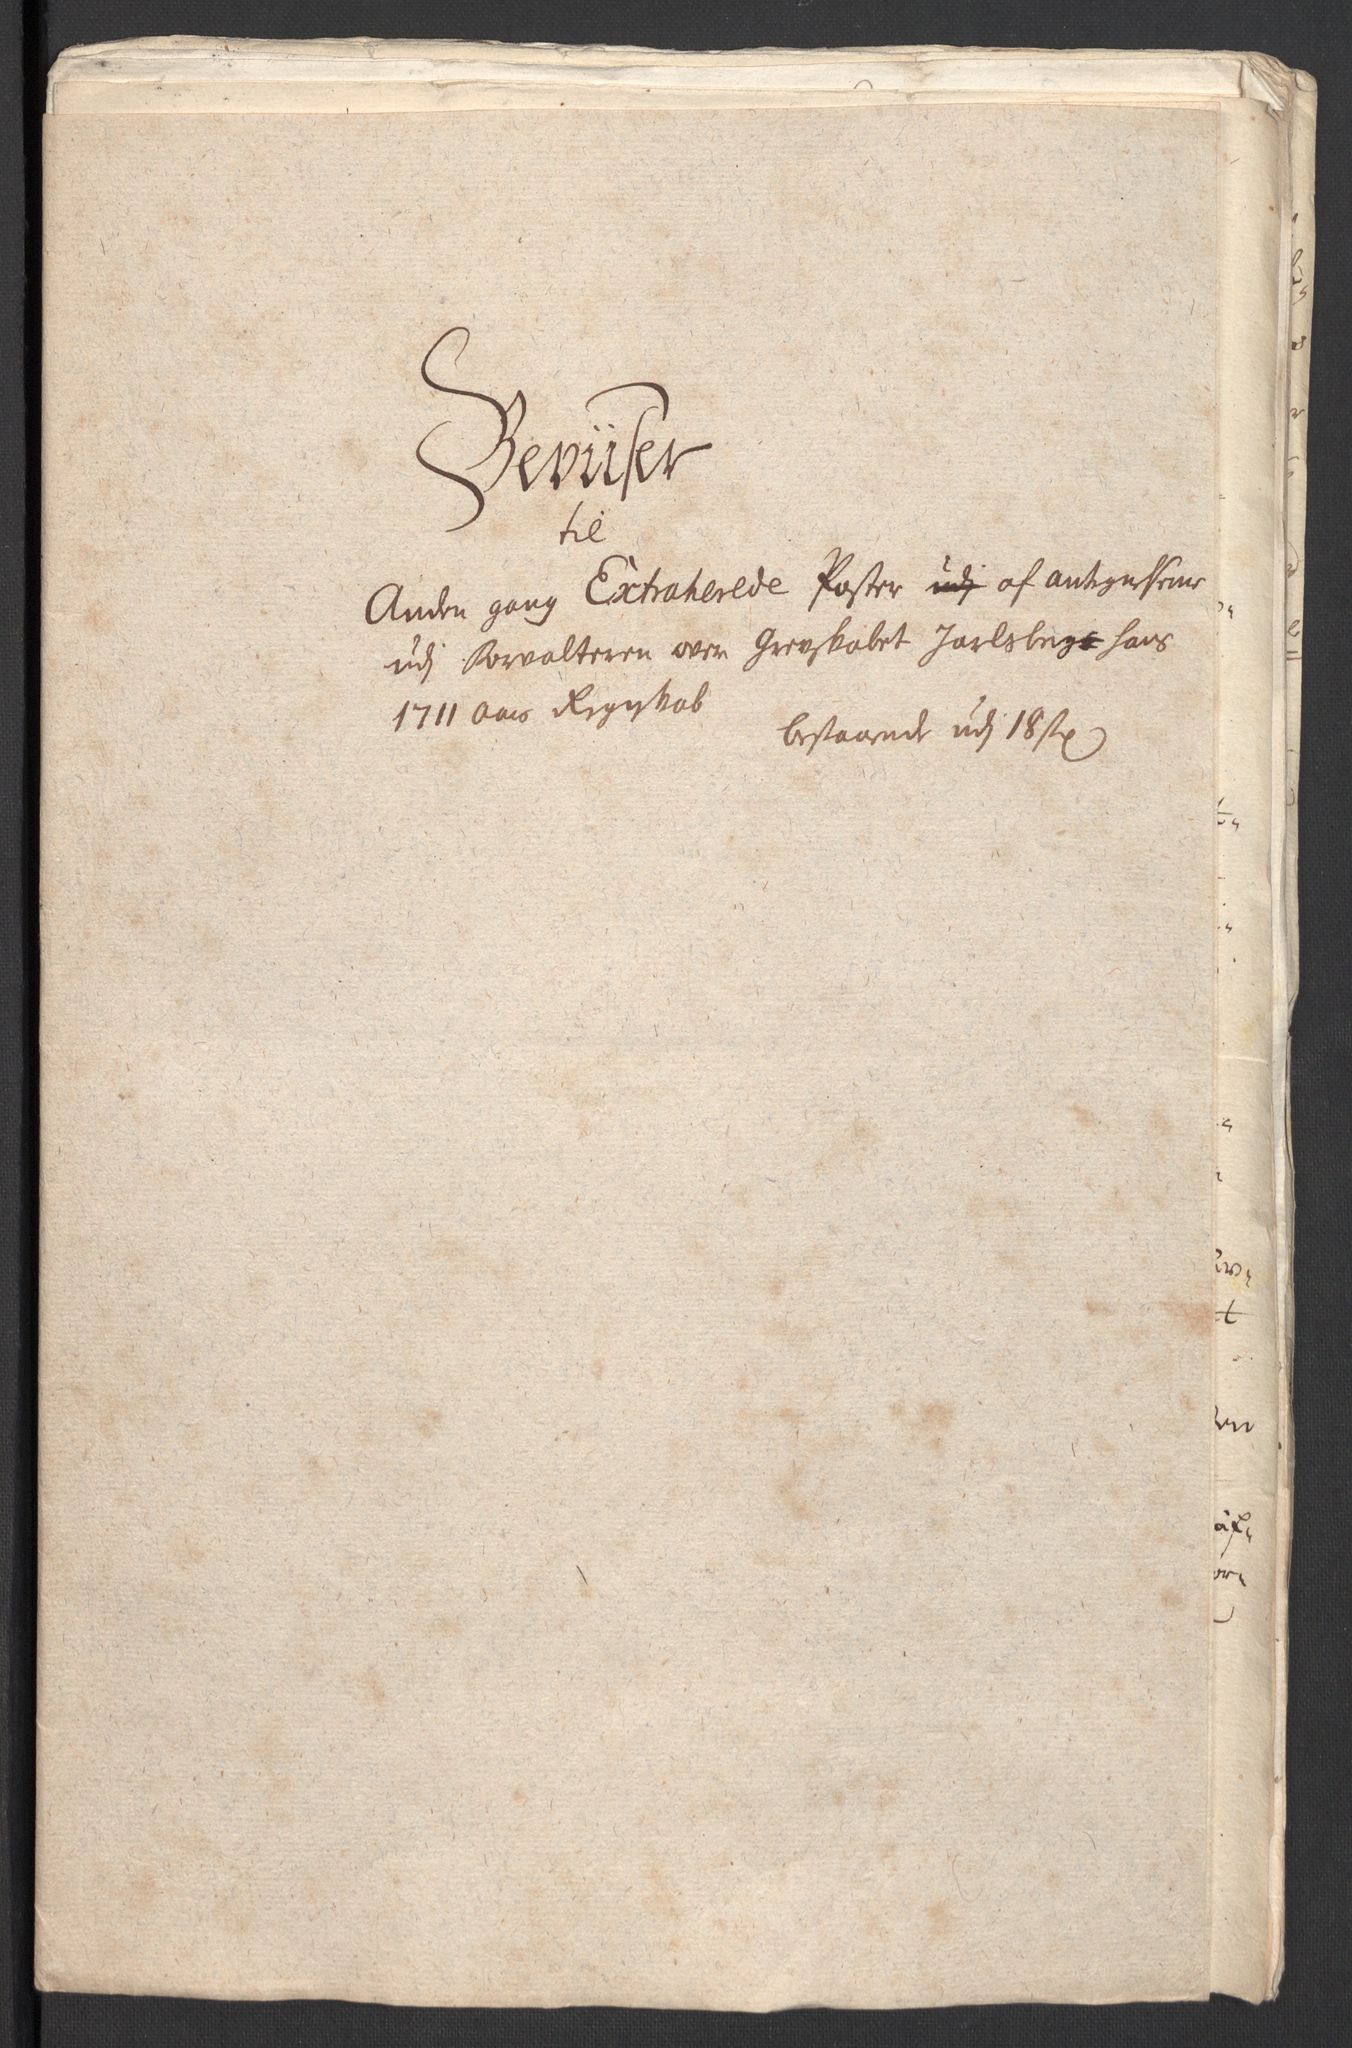 Beviiser
til
Anden gang Extraherede Poster udj af antegnelserne
udj Forvalteren over Grevskabet Jarlsberg hans
1711 aars Regnskab
bestaaende udj 18 st